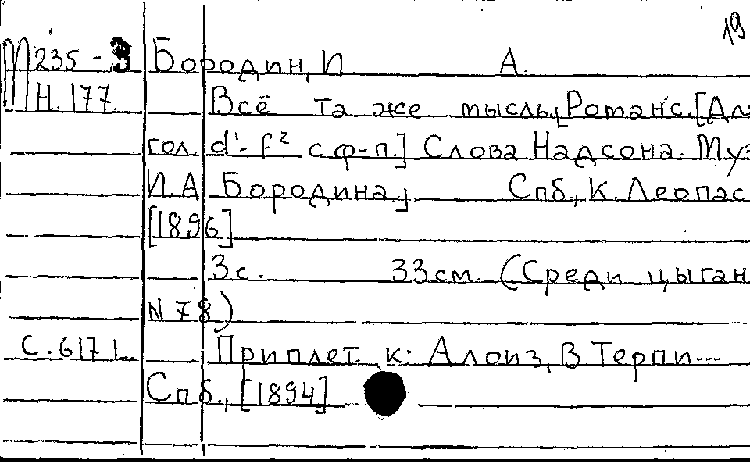 19
М235-3 Бородин, И А.
Н.177 Всё та же мысль. Романс. [Дл
гол. d'-f² с ф-п.] Слова Надсона. Муз
И.А Бородина. Спб., К. Леопас
[1896]
3с. 33см. (Среди цыган
N 78)
С.617 1 Приплет. к: Алоиз, В Терпи...
Спб., [1894]